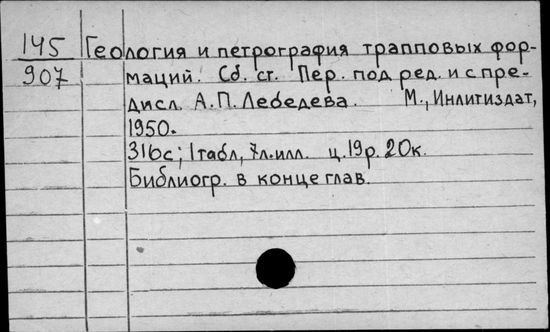 145 Геология и петрография трапповых фор-
907 маций. Сб. ст. Пер. под ред. и с пре-
дисл. А.П. Лебедева. М., Инлитиздат,
1950.
316с; 1табл, 7л.илл. ц. 19р. 20к.
Библиогр. в конце глав.